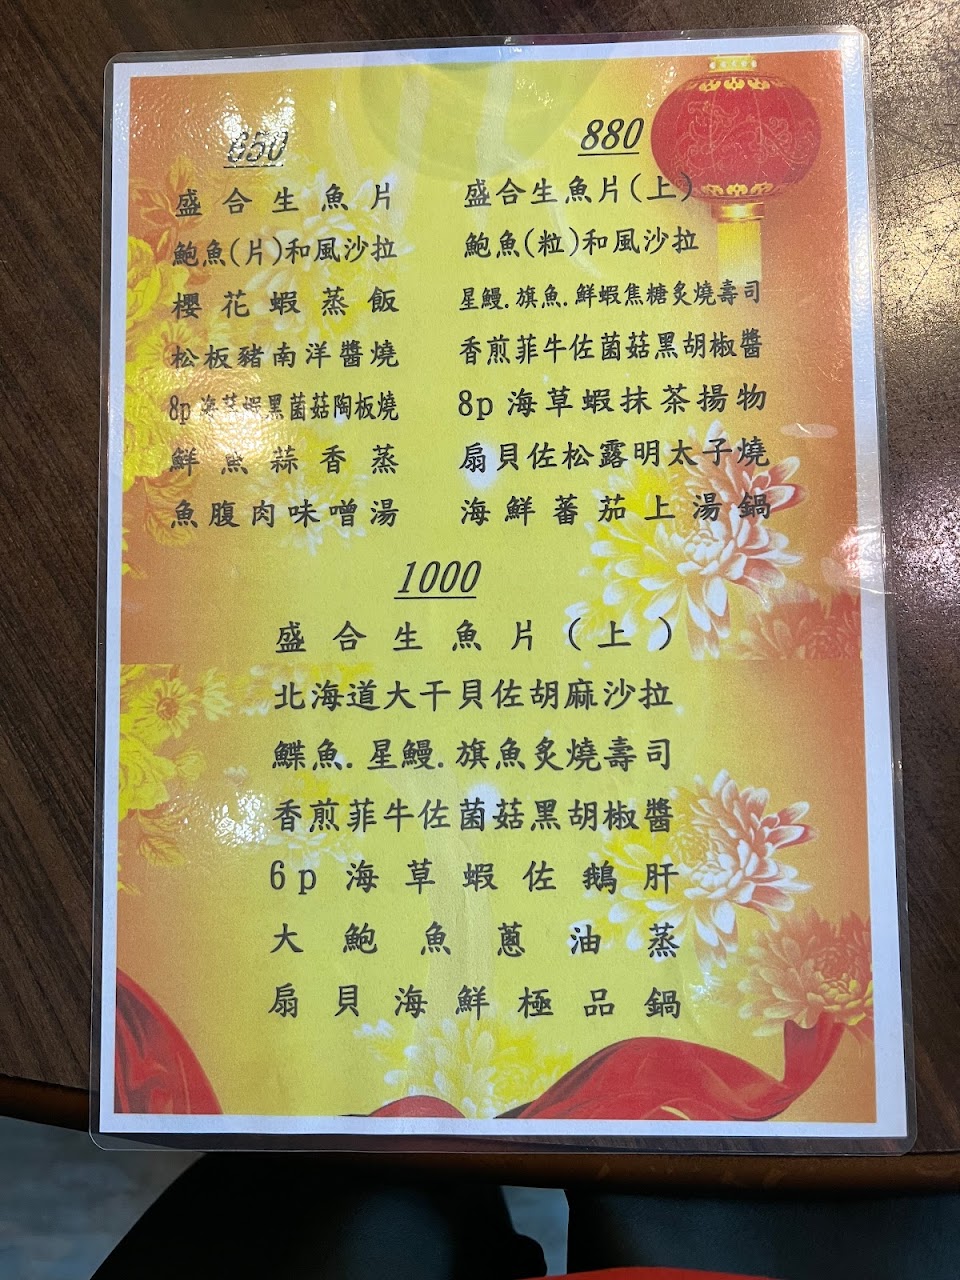 650
盛合生魚片
鮑魚(片)和風沙拉
櫻花蝦蒸飯
松板豬南洋醬燒
8p海草蝦黑菌菇陶板燒
鮮魚蒜香蒸
魚腹肉味噌湯
880
盛合生魚片(上)
鮑魚(粒)和風沙拉
星鰻.旗魚.鮮蝦焦糖炙燒壽司
香煎菲牛佐菌菇黑胡椒醬
8p海草蝦抹茶揚物
扇貝佐松露明太子燒
海鮮蕃茄上湯鍋
1000
盛合生魚片(上)
北海道大干貝佐胡麻沙拉
鰈魚.星鰻.旗魚炙燒壽司
香煎菲牛佐菌菇黑胡椒醬
6p海草蝦佐鵝肝
大鮑魚蔥油蒸
扇貝海鮮極品鍋